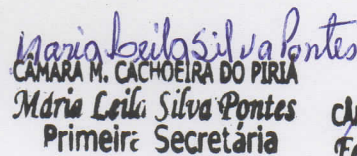 Maria Leila Silva Pontes
CÂMARA M. CACHOEIRA DO PIRIÁ
Maria Leila Silva Pontes
Primeira Secretária